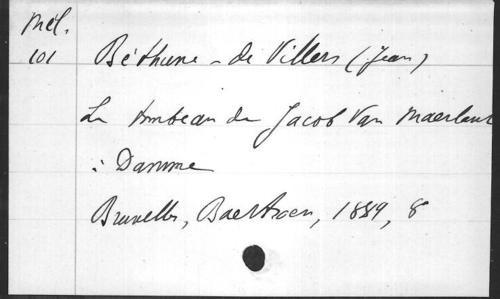 Mél.
101 Béthune - de Villers (Jean)
Le tombeau de Jacob Van Maerlant
à Damme
Bruxelles, Baertsoen, 1889, 8